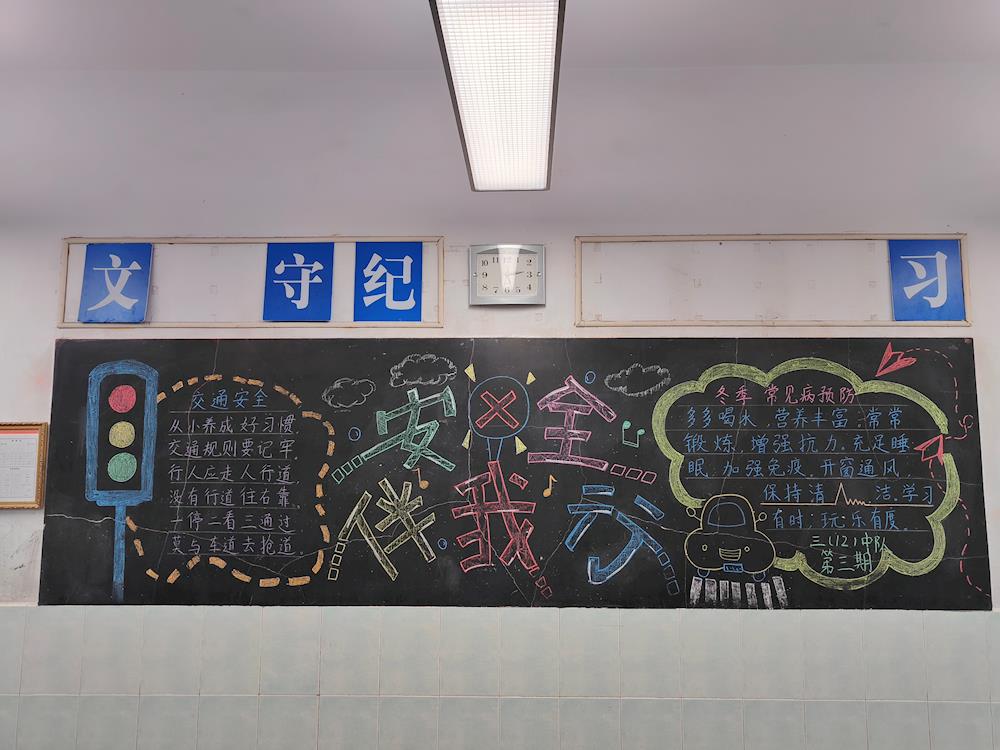 文 守 纪 习
10 11 12 1 2
9 3
8 7 6 5 4
交通安全
从小养成好习惯
交通规则要记牢
行人应走人行道
没有行道往右靠
一停二看三通过
莫与车道去抢道
安全
伴我行
冬季常见病预防
多多喝水,营养丰富,常常
锻炼,增强抗力,充足睡
眠,加强免疫,开窗通风
保持清洁,学习
有时,玩乐有度。
三(12)中队
第三期